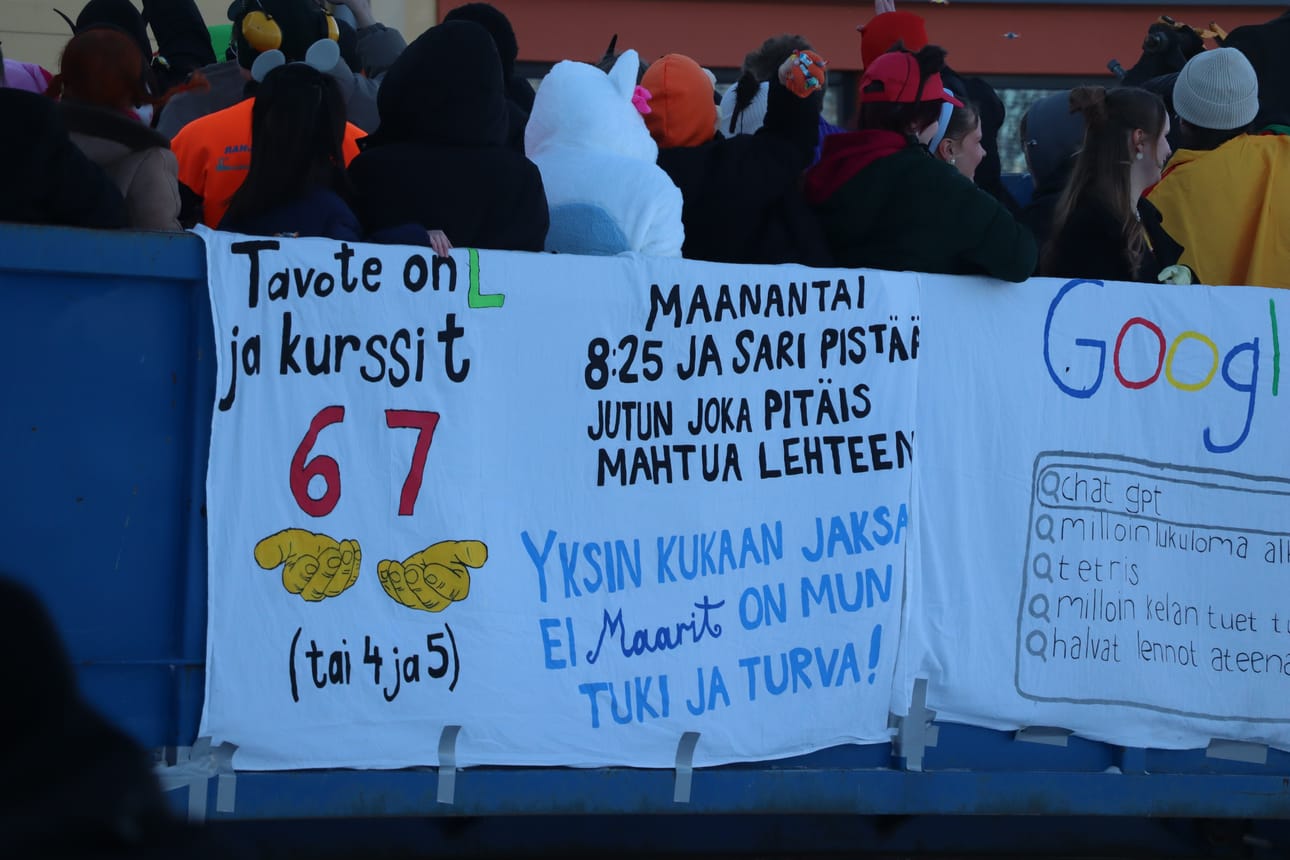 Tavote on L
ja kurssit
6 7
(tai 4 ja 5)
MAANANTAI
8:25 JA SARI PISTÄÄ
JUTUN JOKA PITÄIS
MAHTUA LEHTEEN
YKSIN KUKAAN JAKSA
EI Maarit ON MUN
TUKI JA TURVA!
Googl
chat gpt
milloin lukuloma
tetris
milloin kelan tuet
halvat lennot ateena